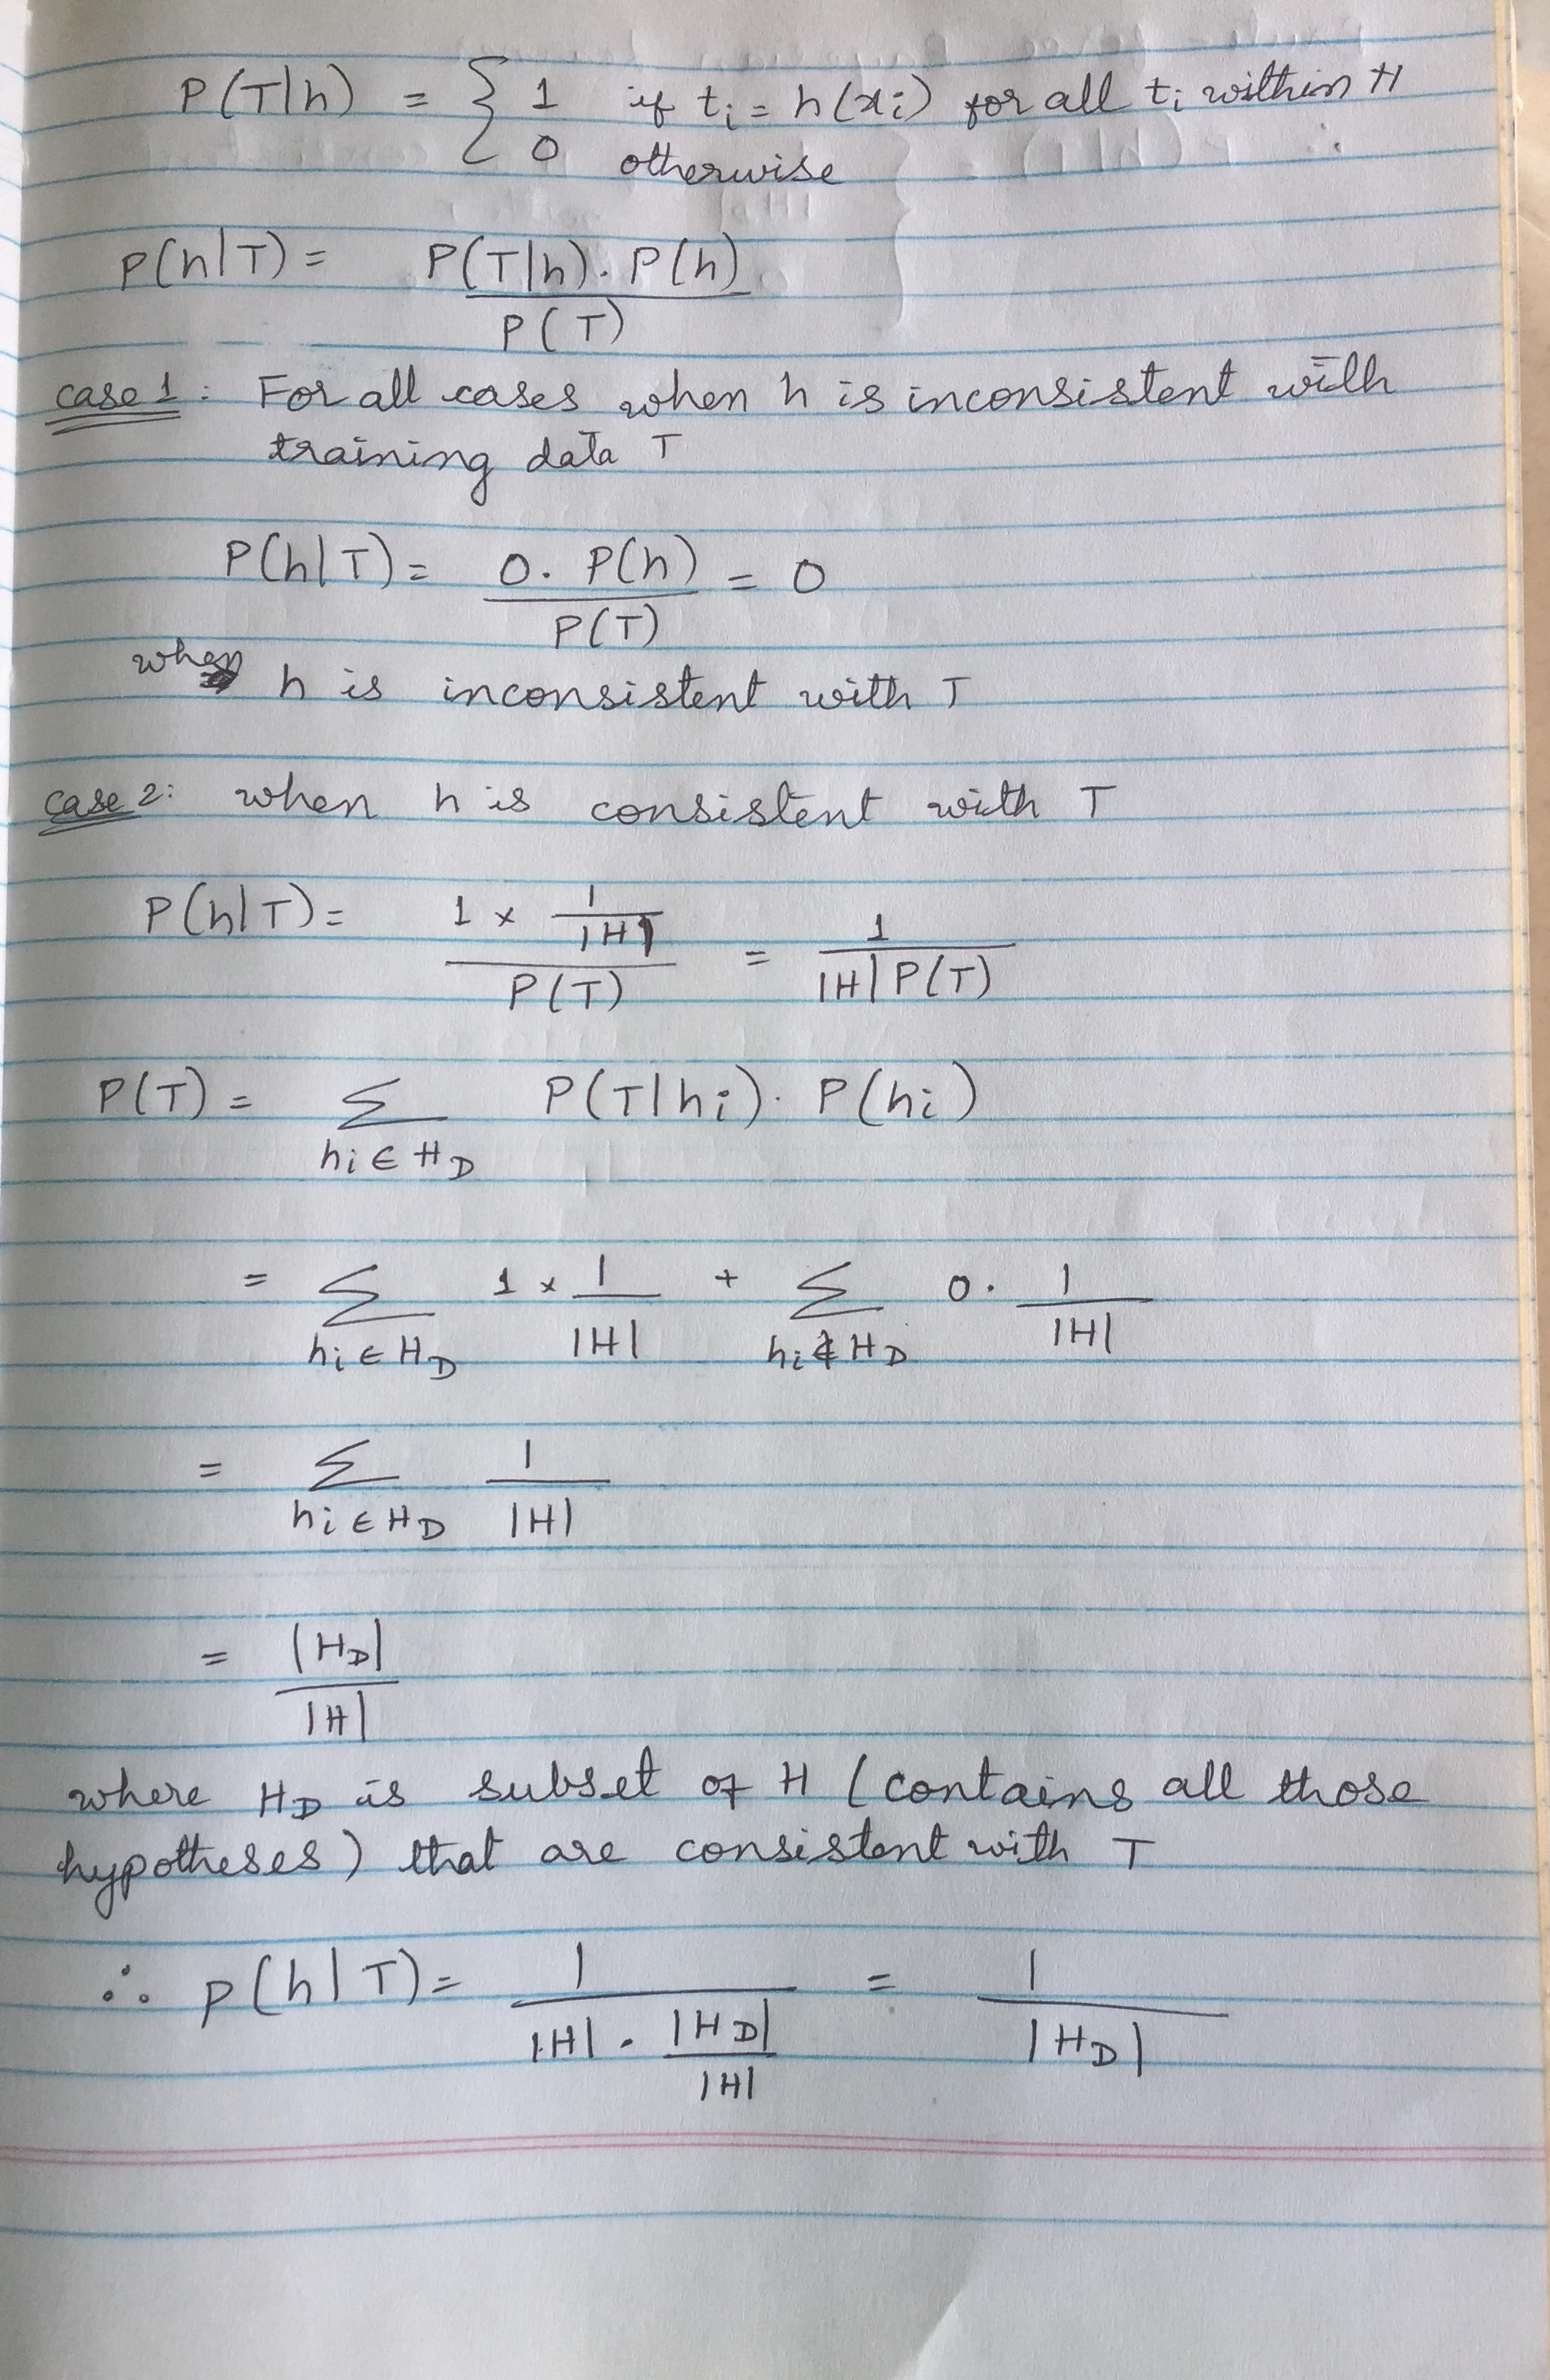 P(T|h) = { 1 if ti = h(xi) for all ti within H
0 otherwise
P(h|T) = P(T|h) . P(h)
P(T)
case 1 : For all cases when h is inconsistent with
training data T
P(h|T) = 0 . P(h) = 0
P(T)
when h is inconsistent with T
case 2: when h is consistent with T
P(h|T) = 1 × 1/|H| = 1
P(T) |H| P(T)
P(T) = Σ P(T|hi) . P(hi)
hi ∈ HD
= Σ 1 × 1 + Σ 0 . 1
hi ∈ HD |H| hi ∉ HD |H|
= Σ 1
hi ∈ HD |H|
= |HD|
|H|
where HD is subset of H (contains all those
hypotheses) that are consistent with T
∴ P(h|T) = 1 = 1
|H| . |HD| |HD|
|H|